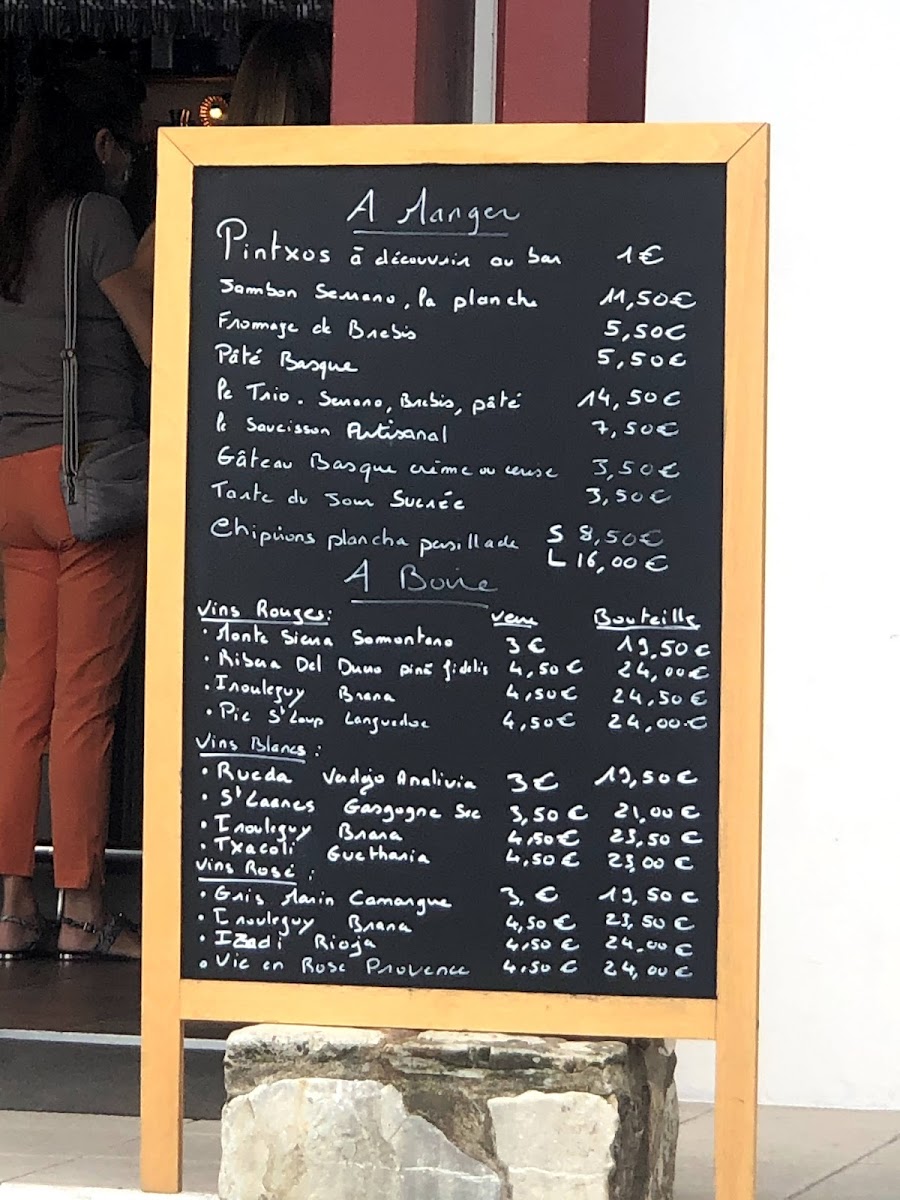 A Manger
Pintxos à découvrir au bar 1€
Jambon Serrano, la planche 11,50€
Fromage de Brebis 5,50€
Pâté Basque 5,50€
le Trio. Serrano, Brebis, pâté 14,50€
le Saucisson Artisanal 7,50€
Gâteau Basque crème ou cerise 3,50€
Tarte du Jour Sucrée 3,50€
Chipirons plancha persillade S 8,50€
L 16,00€
A Boire
Vins Rouges: verre Bouteille
• Monte Sierra Somontano 3€ 19,50€
• Ribera Del Duero pina fidelis 4,50€ 24,00€
• Irouleguy Brana 4,50€ 24,50€
• Pic St Loup Languedoc 4,50€ 24,00€
Vins Blancs:
• Rueda Verdejo Analivia 3€ 19,50€
• St Lannes Gasgogne Sec 3,50€ 21,00€
• Irouleguy Brana 4,50€ 23,50€
• Txacoli Guethania 4,50€ 23,00€
Vins Rosé:
• Gris Marin Camargue 3,€ 19,50€
• Irouleguy Brana 4,50€ 23,50€
• Izadi Rioja 4,50€ 24,00€
• Vie en Rose Provence 4,50€ 24,00€